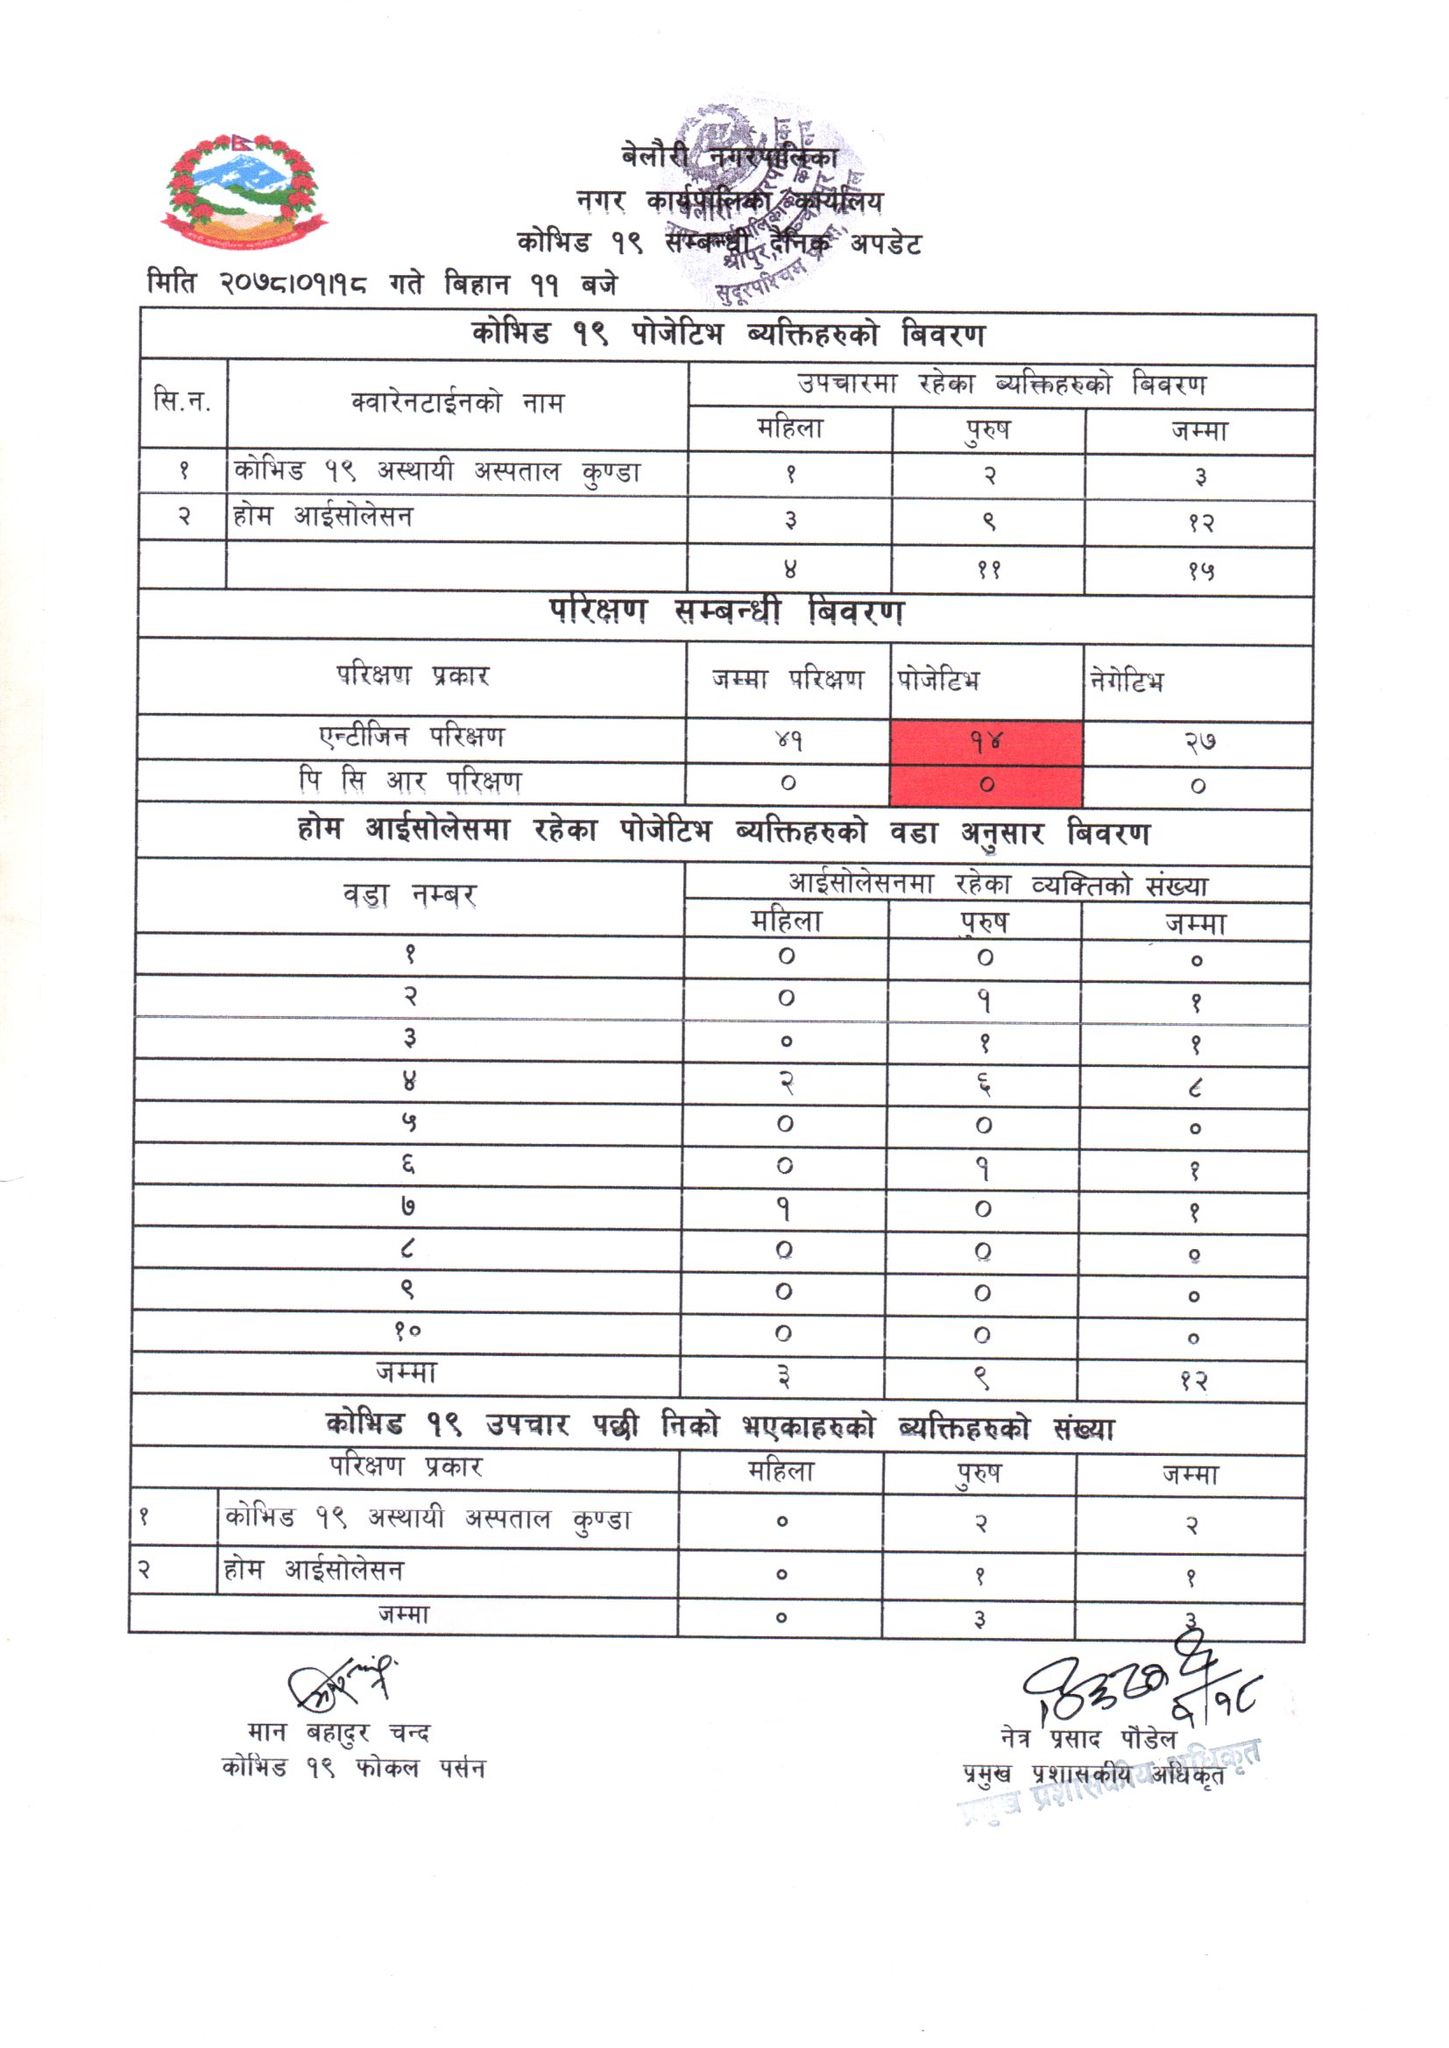 बेलौरी नगरपालिका
नगर कार्यपालिका कार्यालय
कोभिड १९ सम्बन्धी दैनिक अपडेट
मिति २०७८।०१।१८ गते बिहान ११ बजे
कोभिड १९ पोजेटिभ ब्यक्तिहरुको बिवरण
सि.न. क्वारेनटाईनको नाम उपचारमा रहेका ब्यक्तिहरुको बिवरण
महिला पुरुष जम्मा
१ कोभिड १९ अस्थायी अस्पताल कुण्डा १ २ ३
२ होम आईसोलेसन ३ ९ १२
४ ११ १५
परिक्षण सम्बन्धी बिवरण
परिक्षण प्रकार जम्मा परिक्षण पोजेटिभ नेगेटिभ
एन्टीजिन परिक्षण ४१ १४ २७
पि सि आर परिक्षण ० ० ०
होम आईसोलेसमा रहेका पोजेटिभ ब्यक्तिहरुको वडा अनुसार बिवरण
वडा नम्बर आईसोलेसनमा रहेका व्यक्तिको संख्या
महिला पुरुष जम्मा
१ ० ० ०
२ ० १ १
३ ० १ १
४ २ ६ ८
५ ० ० ०
६ ० १ १
७ १ ० १
८ ० ० ०
९ ० ० ०
१० ० ० ०
जम्मा ३ ९ १२
कोभिड १९ उपचार पछी निको भएकाहरुको ब्यक्तिहरुको संख्या
परिक्षण प्रकार महिला पुरुष जम्मा
१ कोभिड १९ अस्थायी अस्पताल कुण्डा ० २ २
२ होम आईसोलेसन ० १ १
जम्मा ० ३ ३
मान बहादुर चन्द
कोभिड १९ फोकल पर्सन
नेत्र प्रसाद पौडेल
प्रमुख प्रशासकीय अधिकृत
प्रमुख प्रशासकीय अधिकृत